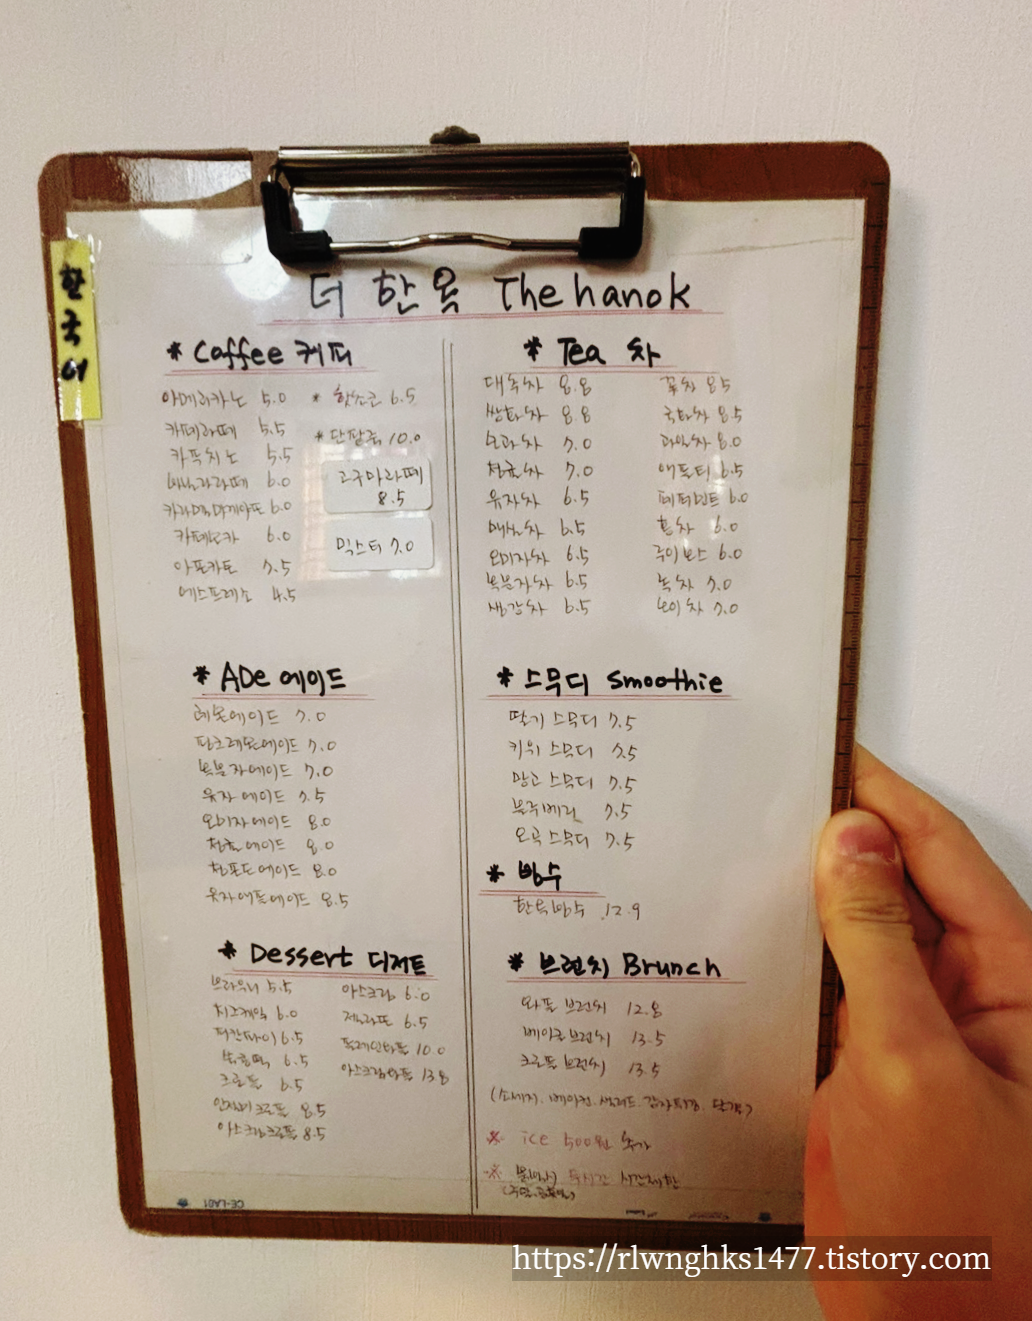 한국어
더 한옥 The hanok
* Coffee 커피
아메리카노 5.0
카페라떼 5.5
카푸치노 5.5
바닐라라떼 6.0
카라멜마끼아또 6.0
카페모카 6.0
아포카토 7.5
에스프레소 4.5
* 핫초코 6.5
* 단팥죽 10.0
고구마라떼
8.5
믹스티 7.0
* Tea 차
대추차 8.8
쌍화차 8.8
모과차 7.0
청귤차 7.0
유자차 6.5
매실차 6.5
오미자차 6.5
복분자차 6.5
생강차 6.5
꽃차 8.5
국화차 8.5
과일차 8.0
애플티 6.5
페퍼민트 6.0
홍차 6.0
루이보스 6.0
녹차 7.0
보이차 7.0
* ADe 에이드
레몬에이드 7.0
핑크레몬에이드 7.0
복분자에이드 7.0
유자에이드 7.5
오미자에이드 8.0
청귤에이드 8.0
청포도에이드 8.0
유자애플에이드 8.5
* 스무디 smoothie
딸기 스무디 7.5
키위 스무디 7.5
망고 스무디 7.5
블루베리 7.5
오곡 스무디 7.5
* 빙수
한옥빙수 12.9
* Dessert 디저트
브라우니 5.5
치즈케익 6.0
피칸파이 6.5
크로플 6.5
인절미크로플 8.5
아스크림크로플 8.5
아스크림 6.0
젤라또 6.5
플레인와플 10.0
아스크림와플 13.8
* 브런치 Brunch
와플 브런치 12.8
베이글 브런치 13.5
크로플 브런치 13.5
(소세지. 베이컨. 샐러드. 감자튀김. 달걀)
※ ice 500원 추가
※ 두시간 시간제한
CE-LA01
https://rlwnghks1477.tistory.com